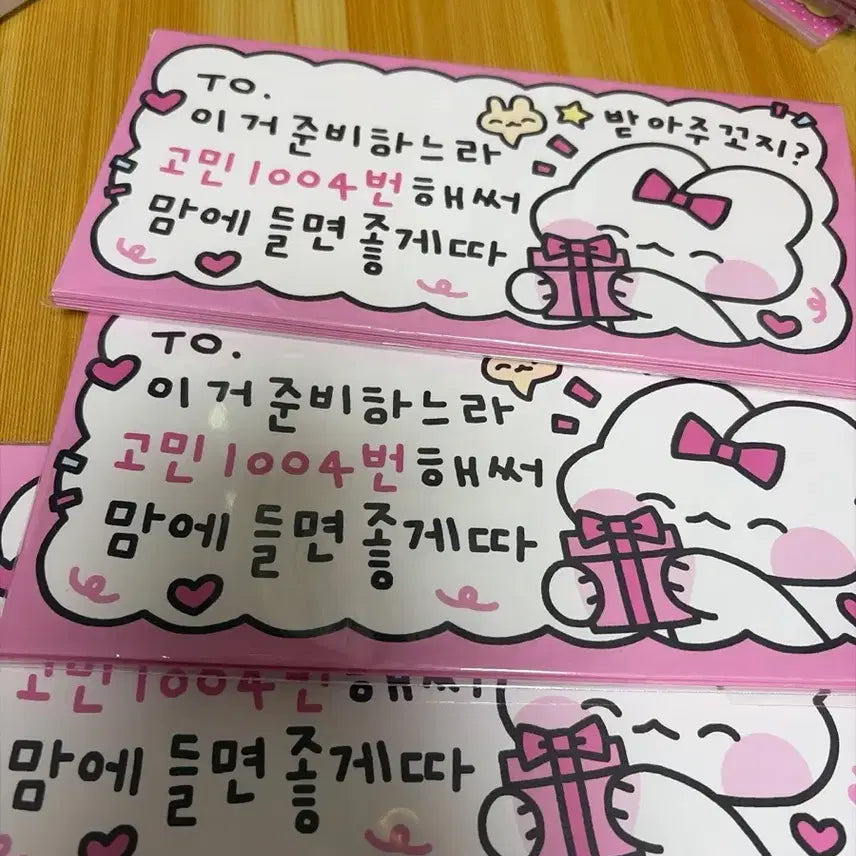 TO.
이거 준비하느라
고민 1004번 해써
맘에 들면 좋게따
받아주꼬지?
TO.
이거 준비하느라
고민 1004번 해써
맘에 들면 좋게따
고민 1004번 해써
맘에 들면 좋게따